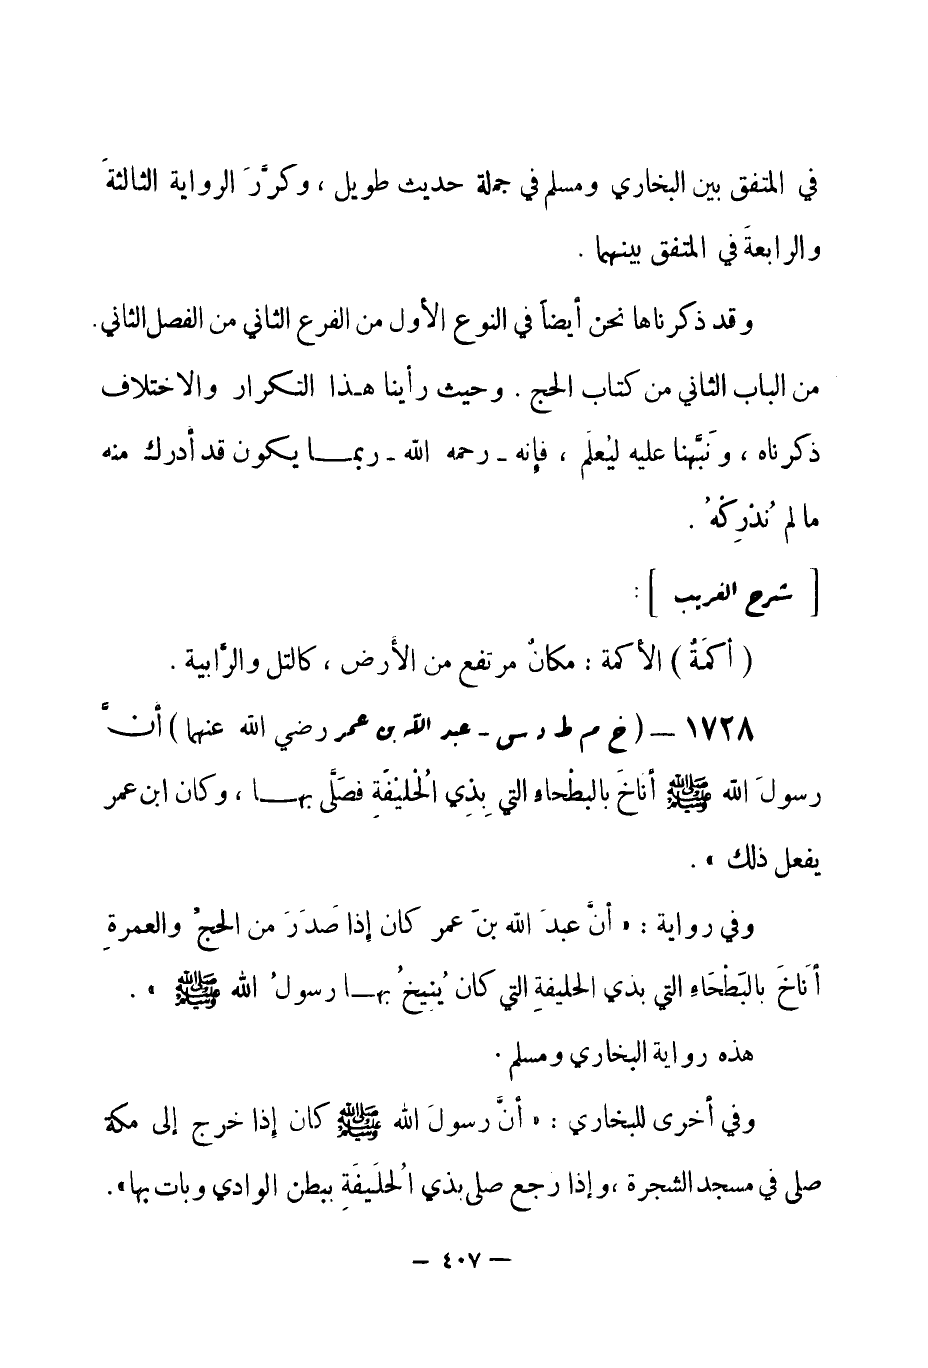 في المتفق بين البخاري ومسلم في جملة حديث طويل ، وكرَّرَ الرواية الثالثةَ
والرابعةَ في المتفق بينهما .
وقد ذكرناها نحن أيضاً في النوع الأول من الفرع الثاني من الفصل الثاني.
من الباب الثاني من كتاب الحج . وحيث رأينا هـذا التكرار والاختلاف
ذكرناه ، ونَبَّهنا عليه ليُعلَم ، فإنه ـ رحمه الله ـ ربمـــا يكون قد أدرك منه
ما لم نُدْرِكْهُ .
[ شرح الغريب ] :
( أكَمَةٌ ) الأكمة : مكانٌ مرتفع من الأرض ، كالتل والرَّابية .
١٧٢٨ — ( خ م ط د س - عبد الله بن عمر رضي الله عنهما ) أنَّ
رسولَ الله ﷺ أناخَ بالبطْحاءِ التي بِذِي الحُلَيْفَةِ فصَلَّى بهـــا ، وكان ابن عمر
يفعل ذلك » .
وفي رواية : « أنَّ عبدَ الله بنَ عمر كان إذا صَدَرَ من الحجِّ والعمرةِ
أَناخَ بالبَطْحَاءِ التي بذي الحليفةِ التي كان يُنِيخُ بهـا رسولُ الله ﷺ » .
هذه رواية البخاري ومسلم .
وفي أخرى للبخاري : « أنَّ رسولَ الله ﷺ كان إذا خرج إلى مكة
صلى في مسجد الشجرة ،وإذا رجع صلى بذي الحُلَيفَةِ ببطن الوادي وبات بها».
— ٤٠٧ —